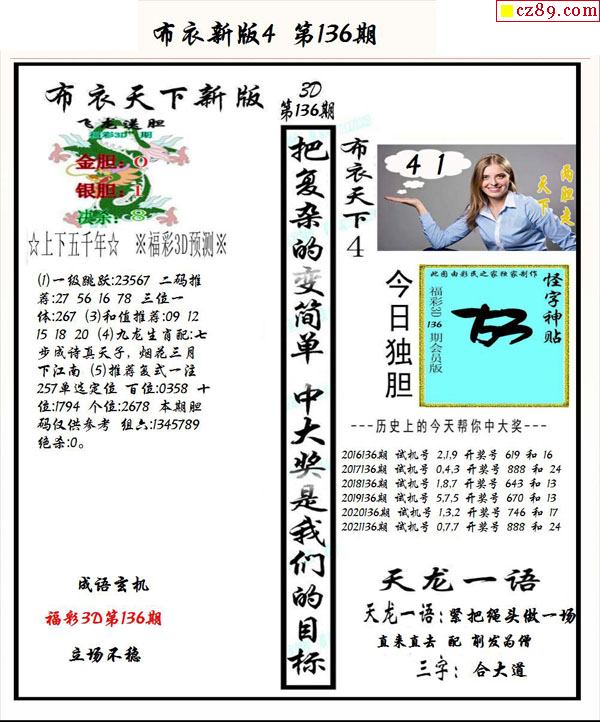 cz89.com
布衣新版4 第136期
布衣天下新版
飞龙送胆
福彩3D 期
金胆：0
银胆：1
决杀：8
☆上下五千年☆ ※福彩3D预测※
(1)一级跳跃:23567 二码推
荐:27 56 16 78 三位一
体:267 (3)和值推荐:09 12
15 18 20 (4)九龙生肖配:七
步成诗真天子，烟花三月
下江南 (5)推荐复式一注
257单选定位 百位:0358 十
位:1794 个位:2678 本期胆
码仅供参考 组六:1345789
绝杀:0。
成语玄机
福彩3D第136期
立场不稳
3D
第136期
把复杂的变简单 中大奖是我们的目标
布衣天下4
4 1
两胆走
天下
今日独胆
此图由彩民之家独家制作
福彩3D 136 期会员版
怪字神贴
---历史上的今天帮你中大奖---
2016136期 试机号 2,1,9 开奖号 619 和 16
2017136期 试机号 0,4,3 开奖号 888 和 24
2018136期 试机号 1,8,7 开奖号 643 和 13
2019136期 试机号 5,7,5 开奖号 670 和 13
2020136期 试机号 1,3,2 开奖号 746 和 17
2021136期 试机号 0,7,7 开奖号 888 和 24
天龙一语
天龙一语：紧把绳头做一场
直来直去 配 削发为僧
三字：合大道